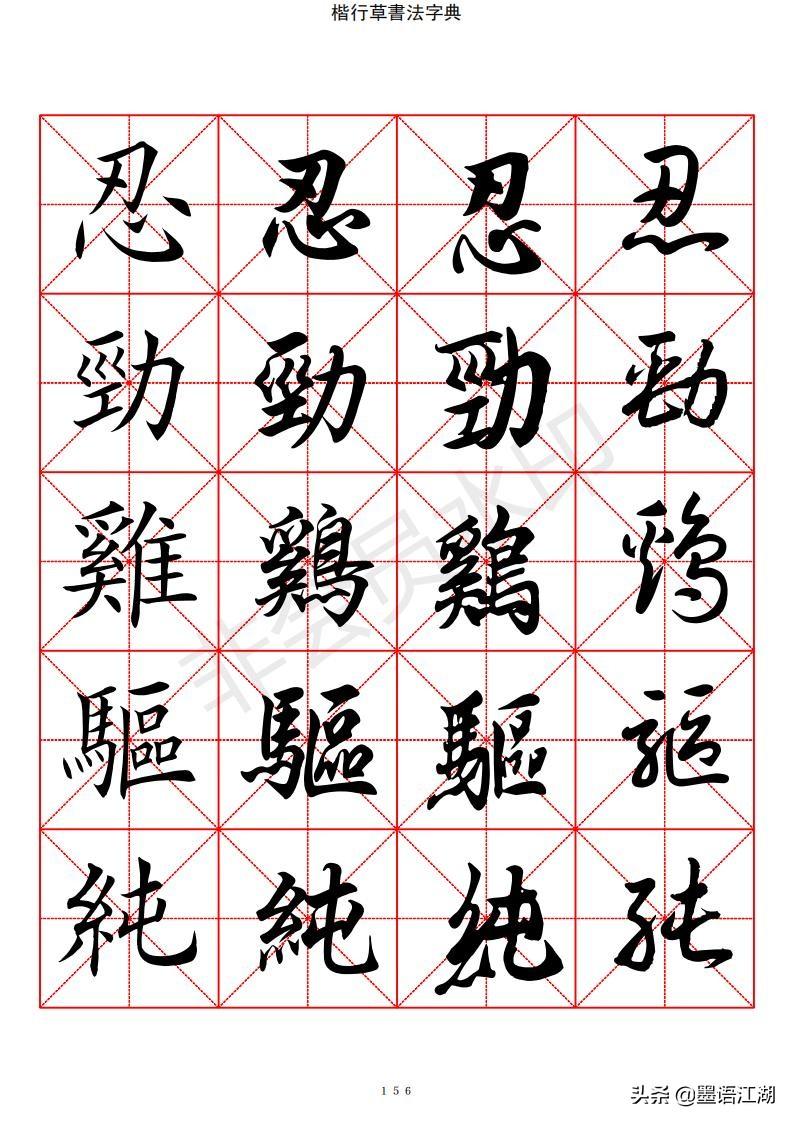 楷行草書法字典
忍 忍 忍 忍
勁 勁 勁 勁
雞 鷄 鷄 鷄
驅 驅 驅 驅
純 純 純 純
非会员水印
156
头条 @墨语江湖